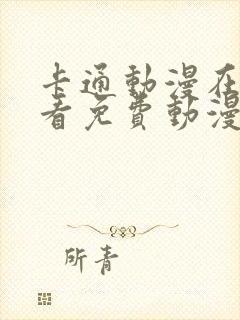 卡通動漫在
看免費動漫
所青